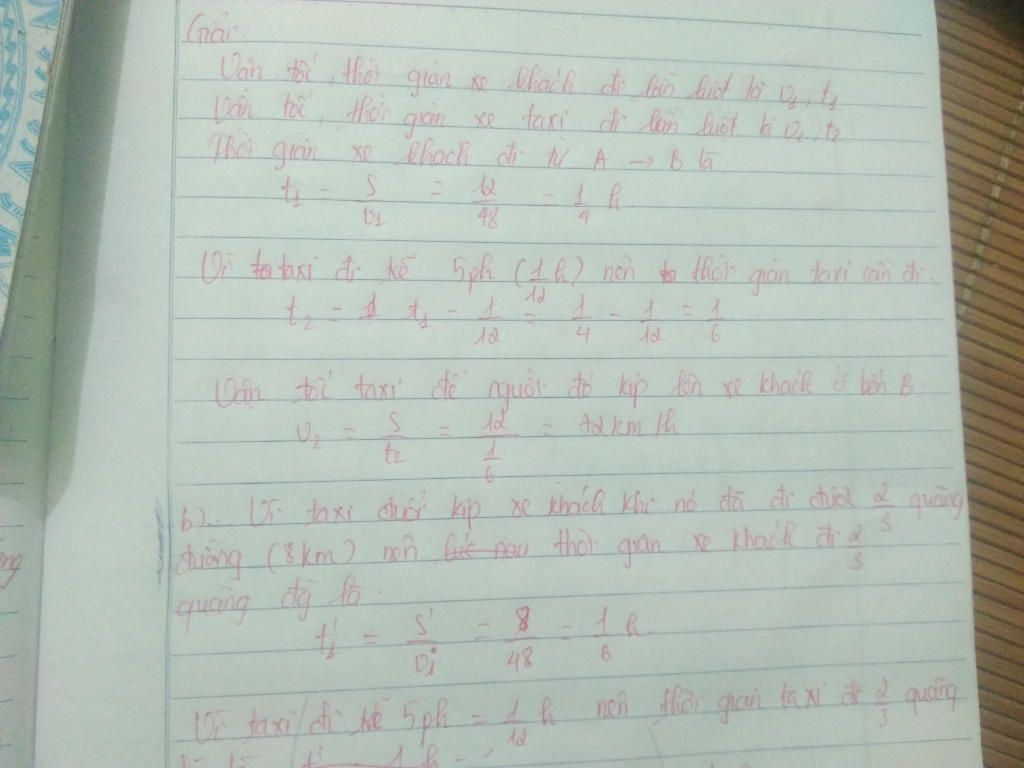 Giải:
Vận tốc, thời gian xe khách đi lần lượt là v1, t1
Vận tốc, thời gian xe taxi đi lần lượt là v2, t2
Thời gian xe khách đi từ A → B là
t1 = S/v1 = 12/48 = 1/4 h.
Vì taxi đi kễ 5ph (1/12 h) nên thời gian taxi cần đi.
t2 = t1 - 1/12 = 1/4 - 1/12 = 1/6
Vận tốc taxi để người đó kịp lên xe khách ở bến B.
v2 = S/t2 = 12/(1/6) = 72km/h.
b). Vì taxi đuổi kịp xe khách khi nó đã đi được 2/3 quãng
đường (8km) nên thời gian xe khách đi 2/3
quãng đg là.
t'1 = S'/v1 = 8/48 = 1/6 h.
Vì taxi đi kễ 5ph = 1/12 h nên thời gian taxi đi 2/3 quãng